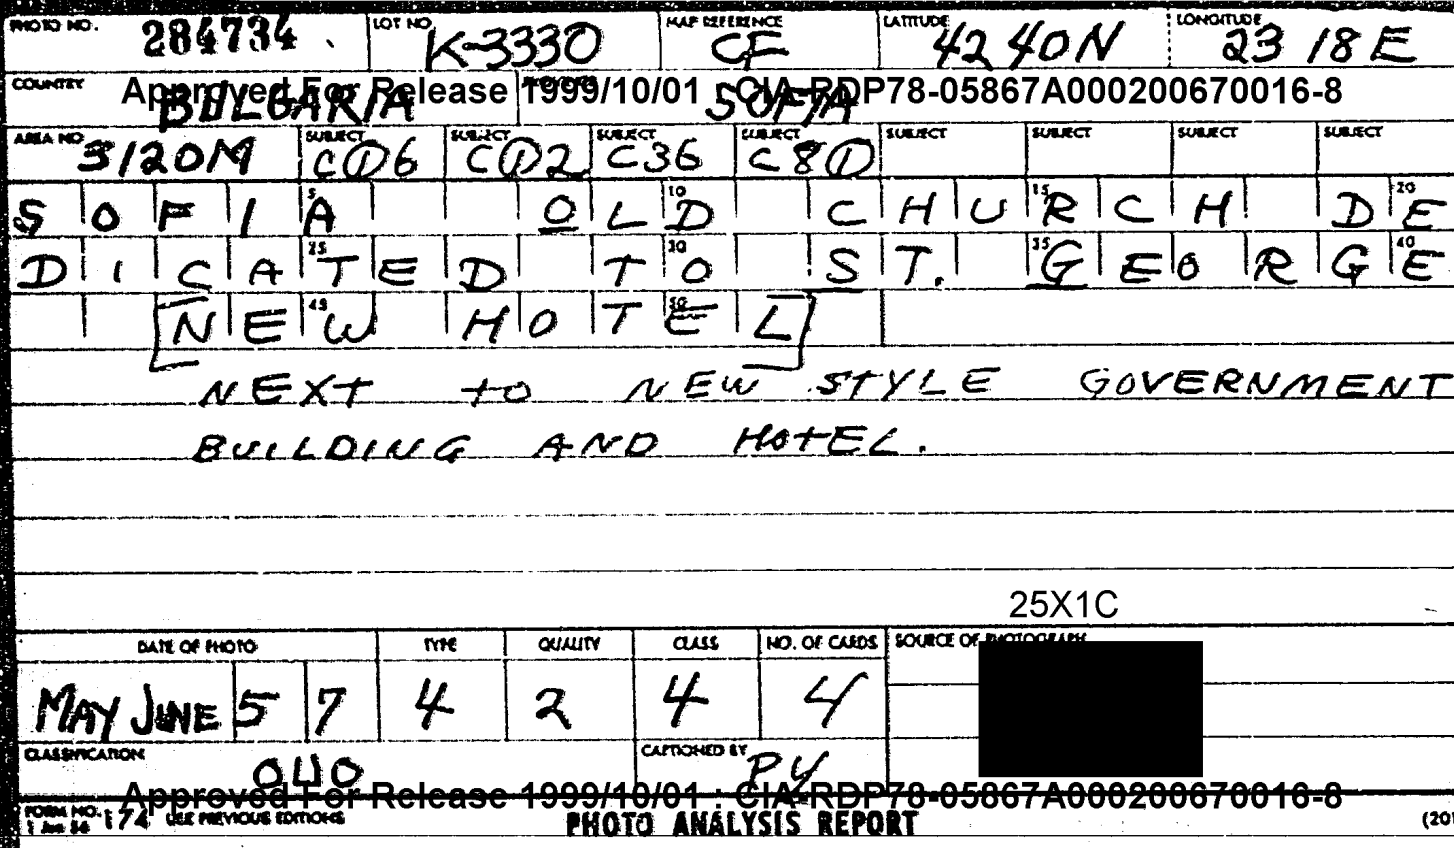 PHOTO NO. 284734 LOT NO. K-3330 MAP REFERENCE CF LATITUDE 42 40N LONGITUDE 23 18E
COUNTRY BULGARIA SOFIA
Approved For Release 1999/10/01 : CIA-RDP78-05867A000200670016-8
AREA NO. 3120M SUBJECT C06 SUBJECT C02 SUBJECT C36 SUBJECT C80 SUBJECT SUBJECT SUBJECT SUBJECT
5 10 15 20
SOFIA OLD CHURCH DE
25 30 35 40
DICATED TO ST. GEORGE
45 50
[NEW HOTEL]
NEXT TO NEW STYLE GOVERNMENT
BUILDING AND HOTEL.
25X1C
DATE OF PHOTO TYPE QUALITY CLASS NO. OF CARDS SOURCE OF PHOTOGRAPH
MAY JUNE 57 4 2 4 4
CLASSIFICATION OUO CAPTIONED BY PY
Approved For Release 1999/10/01 : CIA-RDP78-05867A000200670016-8
FORM NO. 174 USE PREVIOUS EDITIONS PHOTO ANALYSIS REPORT (20
1 Jun 56